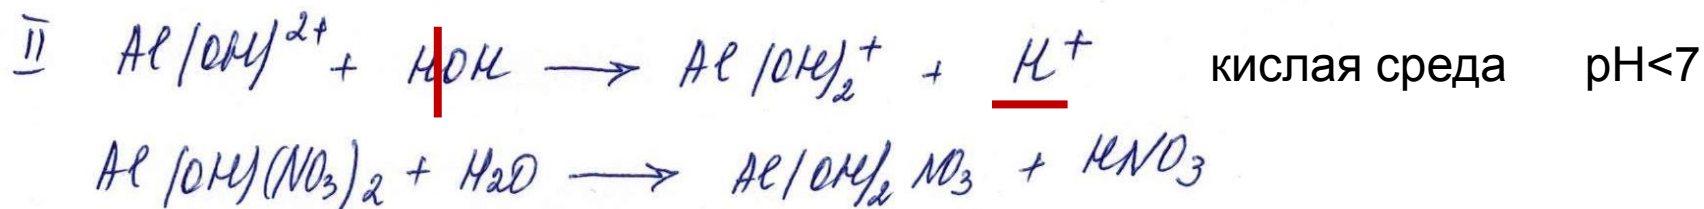 II Al(OH)²⁺ + HOH → Al(OH)₂⁺ + H⁺ кислая среда pH<7
Al(OH)(NO₃)₂ + H₂O → Al(OH)₂NO₃ + HNO₃